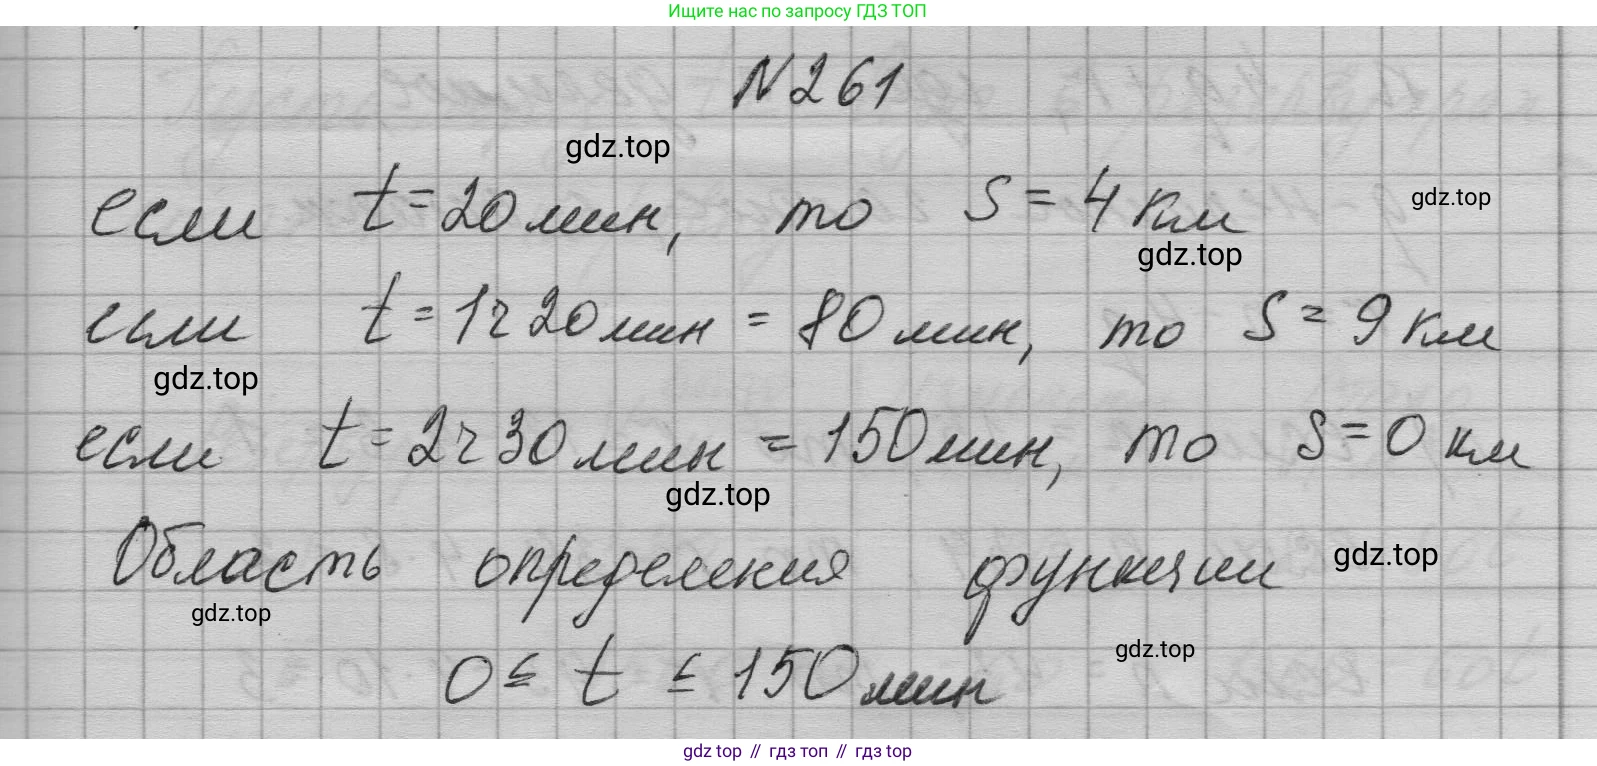 Ищите нас по запросу ГДЗ ТОП
N 261
gdz.top
если t = 20 мин, то S = 4 км
gdz.top
gdz.top
если t = 1ч 20 мин = 80 мин, то S = 9 км
gdz.top
если t = 2ч 30 мин = 150 мин, то S = 0 км
gdz.top
Область определения функции
gdz.top
gdz.top
0 ≤ t ≤ 150 мин
gdz.top
gdz top // гдз топ // gdz top